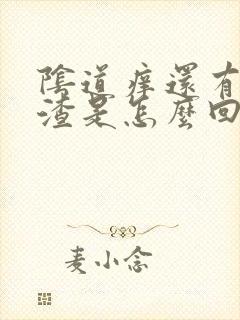 陰道癢還有
渣是怎麼回
麦小念